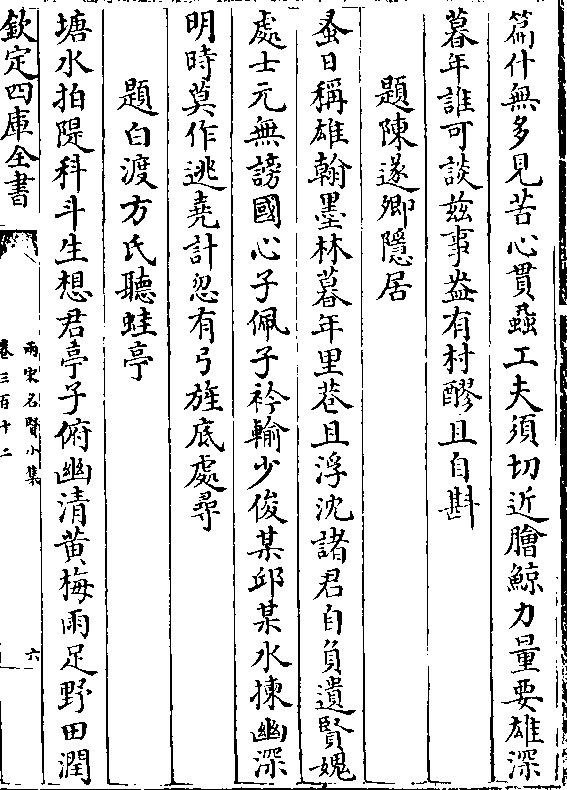 篇什無多見苦心貫蝨工夫須切近膾鯨力量要雄深
暮年誰可談兹事盎有村醪且自斟
題陳遂卿隱居
蚤日稱雄翰墨林暮年里巷且浮沈諸君自負遺賢媿
處士元無謗國心子佩子衿輸少俊某邱某水揀幽深
明時莫作逃堯計忽有弓旌底處尋
題白渡方氏聽蛙亭
塘水拍隄科斗生想君亭子俯幽清黄梅雨足野田潤
欽定四庫全書
兩宋名賢小集
卷三百十二
六